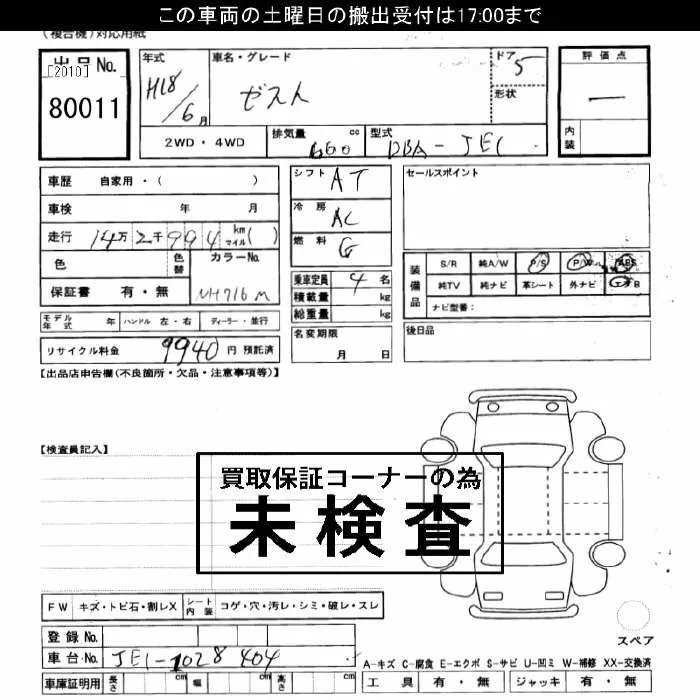 この車両の土曜日の搬出受付は17:00まで
(複合機)対応用紙
出品No.
[2010]
80011
年式
H18/6月
車名・グレード
ゼスト
ドア
5
形状
評価点
ー
内装
2WD・4WD
排気量 660 cc
型式 DBA-JE1
車歴 自家用・( )
車検 年 月
走行 14万2千994 km マイル( )
色 色替 カラーNo.
保証書 有・無 NH716M
シフト AT
冷房 AC
燃料 G
乗車定員 4名
積載量 kg
総重量 kg
セールスポイント
装備品
S/R 純A/W P/S P/W ABS
純TV 純ナビ 革シート 外ナビ エアB
ナビ型番:
モデル年式 年 ハンドル 左・右 ディーラー・並行
リサイクル料金 9940 円 預託済
名変期限 月 日
後日品
【出品店申告欄(不良箇所・欠品・注意事項等)】
【検査員記入】
買取保証コーナーの為
未検査
FW キズ・トビ石・割レX シート内装 コゲ・穴・汚レ・シミ・破レ・スレ
スペア
登録No.
車台No. JE1-1028404
A-キズ C-腐食 E-エクボ S-サビ U-凹ミ W-補修 XX-交換済
車庫証明用 長さ cm 幅 cm 高さ cm
工具 有・無 ジャッキ 有・無